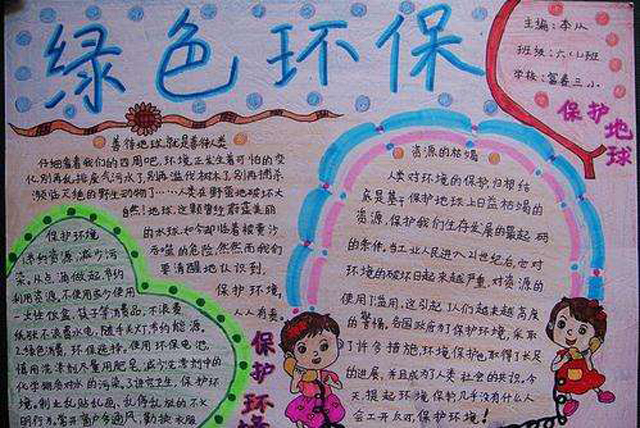 绿色环保
主编：李从
班级：六(1)班
学校：富春三小
保护地球
善待地球,就是善待人类
仔细看看我们的四周吧,环境正发生着可怕的变
化,别再乱排废气污水了,别再滥伐树木了,别再捕杀
濒临灭绝的野生动物了……人类在野蛮地破坏大
自然!地球,这颗曾经蔚蓝美丽
的水球,如今却临着被黄沙
吞噬的危险,然而我们
要清醒地认识到,
保护环境,
人人有责。
保护环境
节约资源,减少污
染。从点滴做起,节约
利用资源,不使用或少使用
一次性饭盒、筷子等消费品,不浪费
纸张不浪费水电,随手关灯节约能源。
2.绿色消费,环保选择。使用环保电池,
慎用洗涤剂尽量用肥皂,减少洗涤剂中的
化学物质对水的污染。3.讲究卫生,保护环
境。制止乱贴乱画,乱停乱放的不文
明行为。常开窗户多通风,勤换衣服
保护环境
资源的枯竭
人类对环境的保护,归根结
底是基于保护地球上日益枯竭的
资源,保护我们生存发展的最起码
的条件。当工业人民进入21世纪后,它对
环境的破坏日起来越严重,对资源的
使用了滥用。这引起了人们越来越高度
的警惕。各国政府为了保护环境,采取
了许多措施,环境保护也取得了长足
的进展,并且成为了人类社会的共识。今
天,提起环境保护,几乎没有什么人
会工开反对,保护环境!